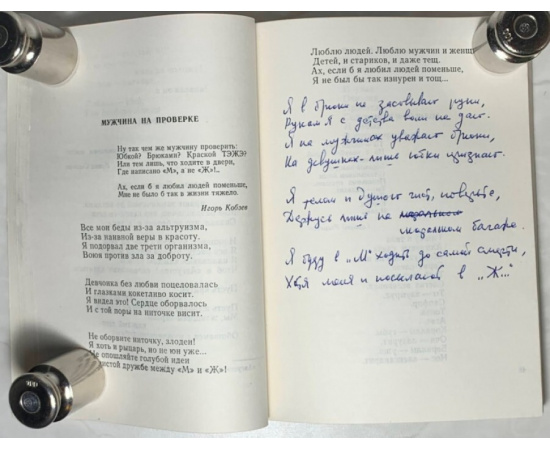 МУЖЧИНА НА ПРОВЕРКЕ
Ну так чем же мужчину проверить:
Юбкой? Брюками? Краской ТЭЖЭ?
Или тем лишь, что ходите в двери,
Где написано «М», а не «Ж»!..
Ах, если б я любил людей поменьше,
Мне не было б так в жизни тяжело.
Игорь Кобзев
Все мои беды из-за альтруизма,
Из-за наивной веры в красоту,
Я подорвал две трети организма,
Воюя против зла за доброту.
Девчонка без любви поцеловалась
И глазками кокетливо косит.
Я видел это! Сердце оборвалось
И с той поры на ниточке висит.
Не оборвите ниточку, злодеи!
Я хоть и рыцарь, но не юн уже...
Не опошляйте голубой идеи
чистой дружбе между «М» и «Ж»!
Люблю людей. Люблю мужчин и женщ
Детей, и стариков, и даже тещ.
Ах, если б я любил людей поменьше,
Я не был бы так изнурен и тощ...
Я в брюки не засовываю руки,
Рукам я с детства воли не даю.
Я на мужчинах уважаю брюки,
На девушках лишь юбки признаю.
Я телом и душою чист, поверьте,
Держусь лишь на
моральном багаже.
Я буду в „М" ходить до самой смерти,
Хотя меня и посылают в „Ж..."